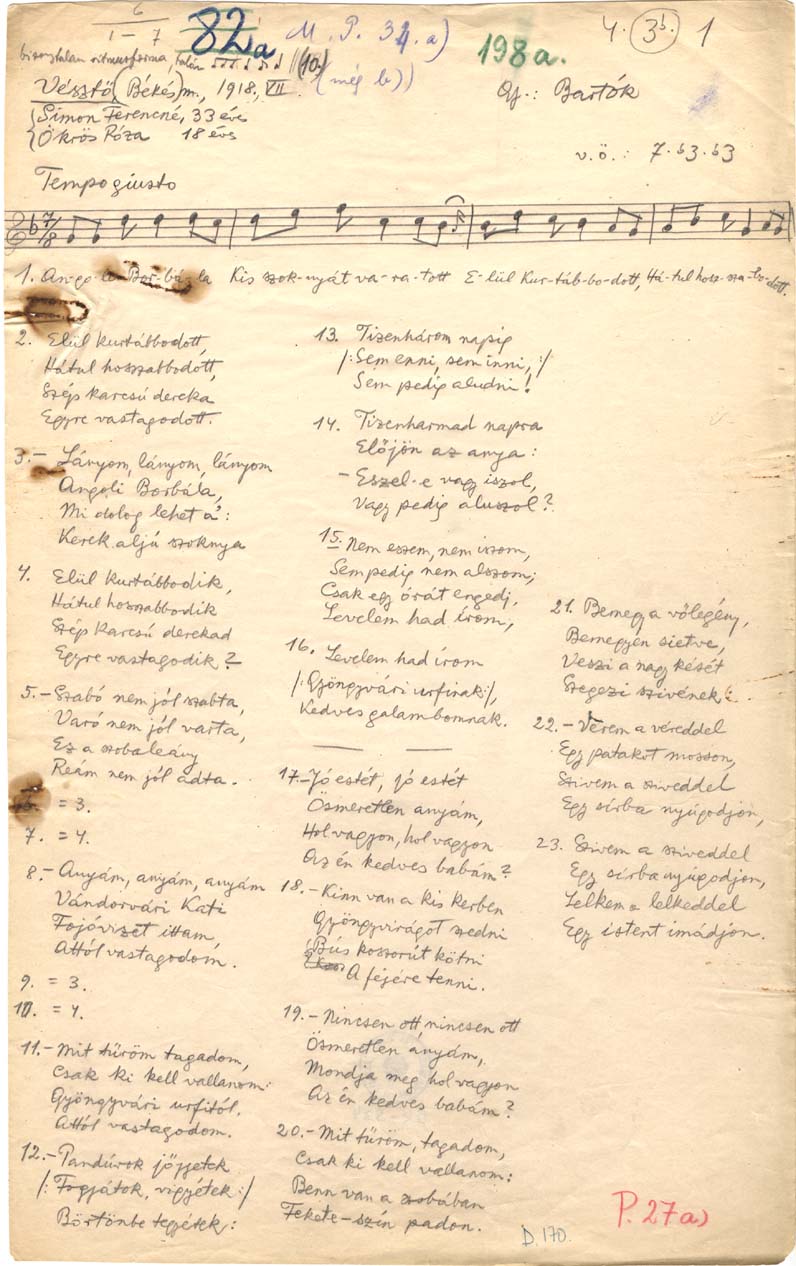 6
1-7
82a
M. P. 31. a)
(még b))
198a.
4. 3b. 1
bizonytalan ritmusforma, talán
(10.)
Vésztő (Békés) m., 1918. VII.
Gy.: Bartók
Simon Ferencné, 33 éves
Ökrös Róza 18 éves
v.ö.: 7. b3. b3
Tempo giusto
7/8
1. An-go-li Bor-bá-la Kis szok-nyát va-ra-tott E-lül kur-táb-bo-dott, Há-tul hosz-sza-bo-dott.
2. Elül kurtábbodott,
Hátul hosszabbodott,
Szép karcsú dereka
Egyre vastagodott.
3.- Lányom, lányom, lányom
Angoli Borbála,
Mi dolog lehet a':
Kerek aljú szoknya
4. Elül kurtábbodik,
Hátul hosszabbodik
Szép karcsú derekad
Egyre vastagodik?
5.- Szabó nem jól szabta,
Varó nem jól varta,
Ez a szobaleány
Reám nem jól adta.
6. = 3.
7. = 4.
8.- Anyám, anyám, anyám
Vándorvári Kati
Folyóvizet ittam,
Attól vastagodom.
9. = 3.
10. = 4.
11.- Mit tűröm tagadom,
Csak ki kell vallanom:
Gyöngyvári urfitól.
Attól vastagodom.
12.- Pandúrok jőjjetek
/: Fogjátok, vigyétek :/
Börtönbe tegyétek:
13. Tizenhárom napig
/: Sem enni, sem inni, :/
Sem pedig aludni!
14. Tizenharmad napra
Előjön az anya:
- Eszel-e vagy iszol,
Vagy pedig aluszol?
15.- Nem eszem, nem iszom,
Sem pedig nem alszom;
Csak egy órát engedj,
Levelem had írom,
16. Levelem had írom
/: Gyöngyvári urfinak :/,
Kedves galambomnak.
17.- Jó estét, jó estét
Ösmeretlen anyám,
Hol vagyon, hol vagyon
Az én kedves babám?
18.- Kinn van a kis kerben
Gyöngyvirágot szedni
Bús koszorút kötni
A fejére tenni.
19.- Nincsen ott, nincsen ott
Ösmeretlen anyám,
Mondja meg hol vagyon
Az én kedves babám?
20.- Mit tűröm, tagadom,
Csak ki kell vallanom:
Benn van a szobában
Fekete-szín padon.
21. Bemegy a vőlegény,
Bemegyen sietve,
Veszi a nagy kését
Szegezi szivének:
22.- Vérem a véreddel
Egy patakot mosson,
Szivem a sziveddel
Egy sírba nyúgodjon,
23. Szivem a sziveddel
Egy sírba nyúgodjon,
Lelkem a lelkeddel
Egy istent imádjon.
D. 170.
P. 27a)